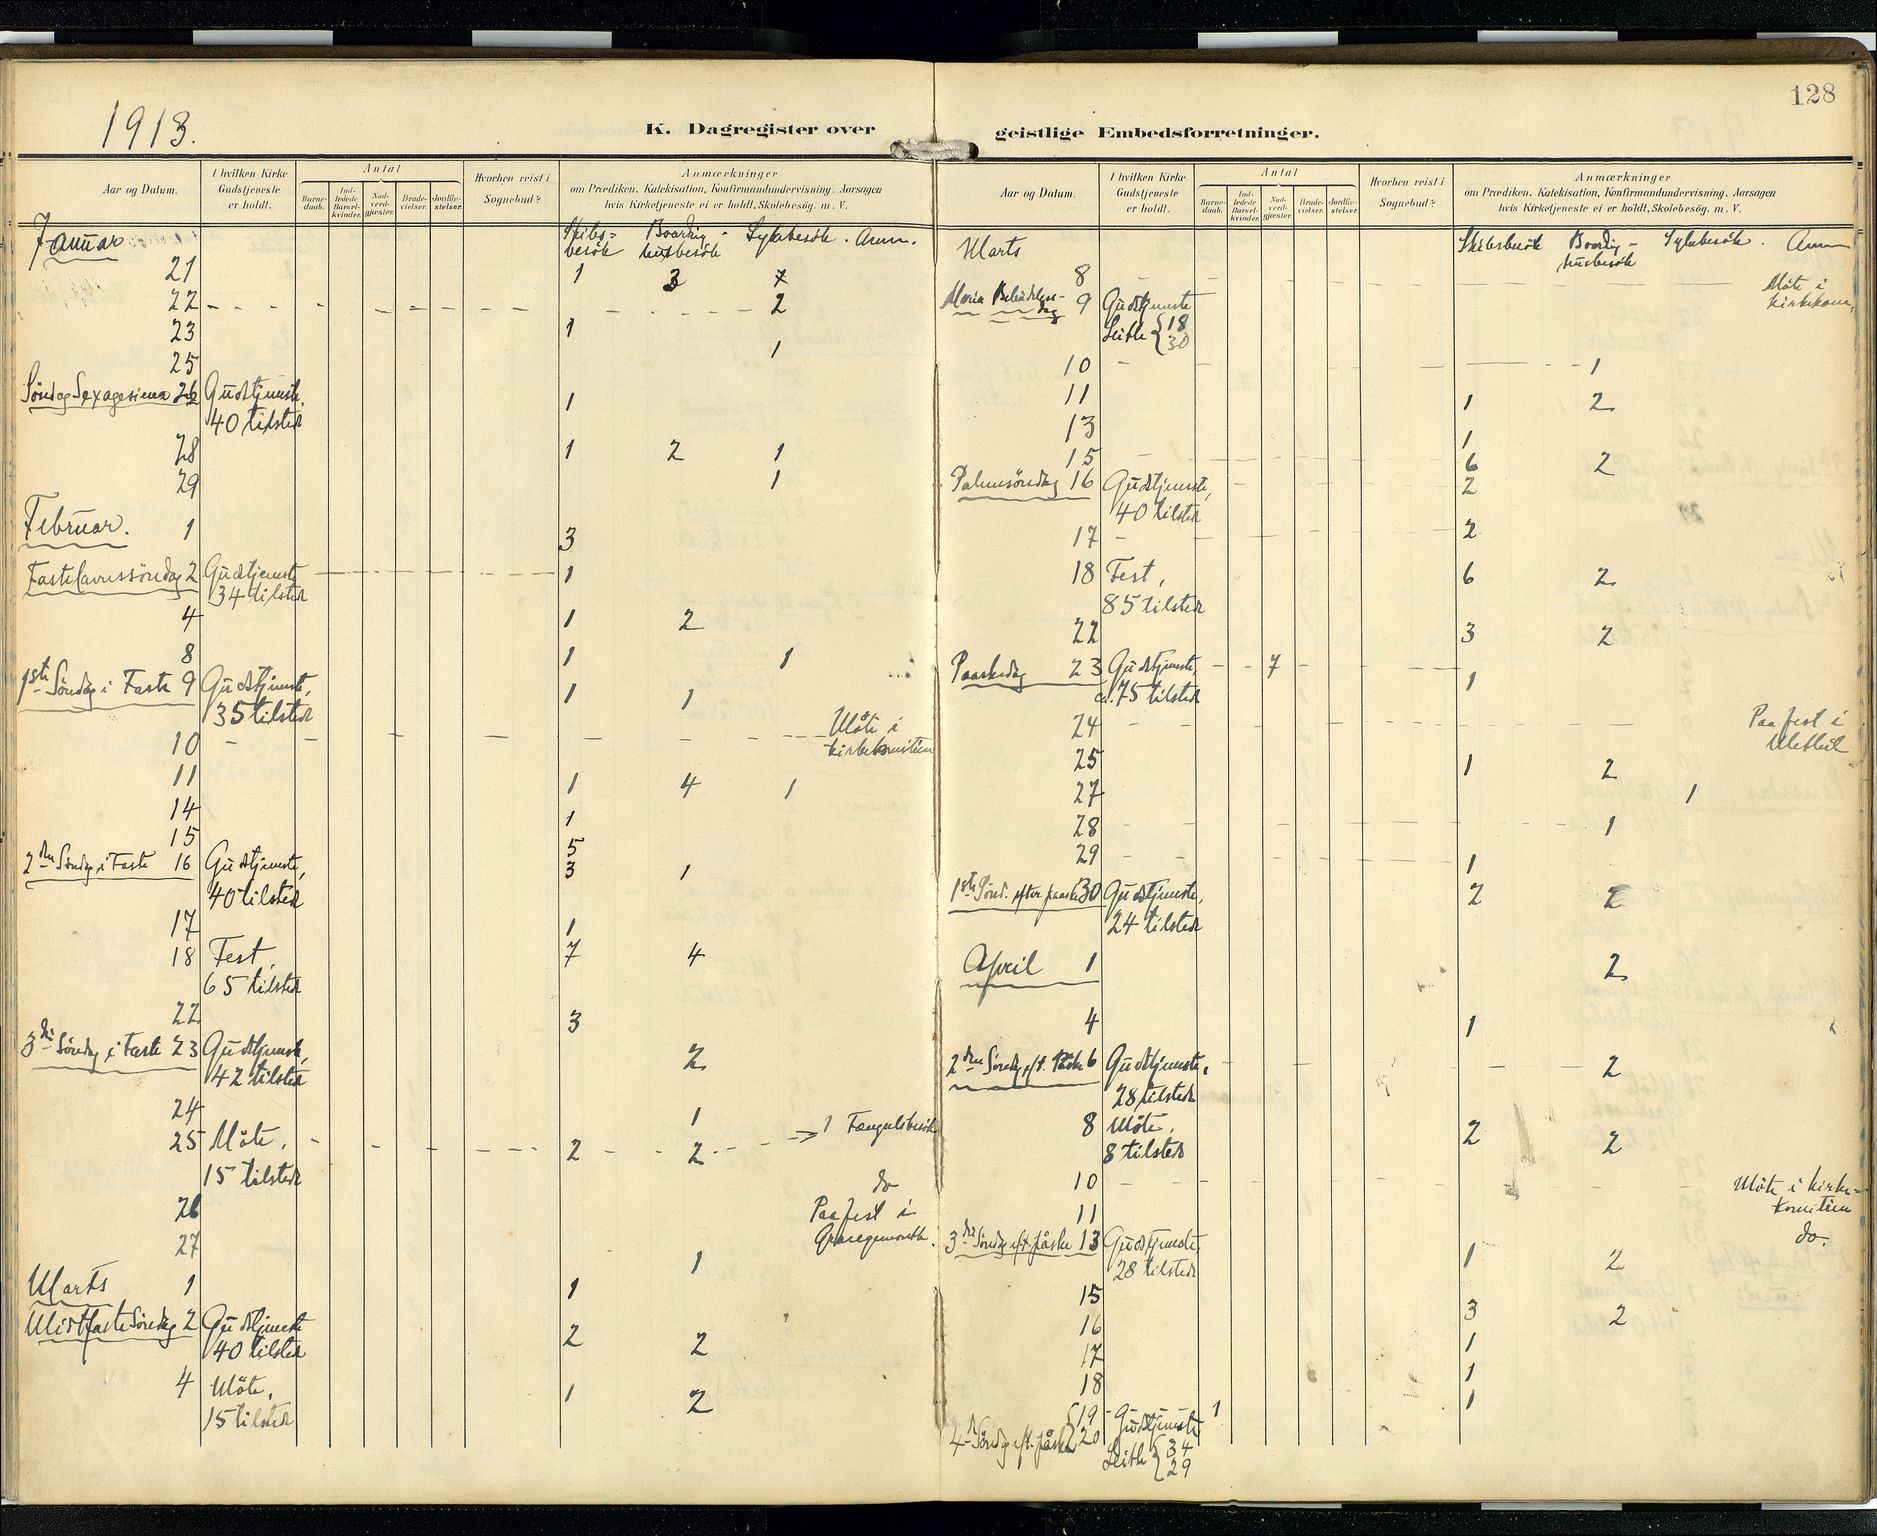 1913.
K. Dagregister over
Aar og Datum.
I hvilken Kirke Gudstjeneste er holdt.
Antal
Barne-daab.
Ind-ledede Barsel-kvinder.
Nad-verd-gjester.
Brude-vielser.
Jordfæ-stelser.
Hvorhen reist i Sognebud?
Anmærkninger
om Prædiken, Katekisation, Konfirmandundervisning. Aarsagen
hvis Kirketjeneste ei er holdt, Skolebesög. m. V.
Januar Skibs= besök Boarding- husbesök Sykebesök. Anm.
21 1 3 7
22 2
23 1
25 1
Söndag Sexagesima 26 Gudstjeneste. 1
40 tilsted
28 1 2 1
29 1
Februar. 1 3
Fastelavnssöndag 2 Gudstjeneste 1
34 tilsted
4 1 2
8 1 1
1ste Söndag i Faste 9 Gudstjeneste, 1 1
35 tilsted
10 Möte i
kirkekomitéen
11 1 4 1
14 1
15 5
2den Söndag i Faste 16 Gudstjeneste, 3 1
40 tilsted
17 1
18 Fest, 7 4
65 tilsted
22 3
3die Söndag i Faste 23 Gudstjeneste, 2
42 tilsted
24 1
25 Möte, 2 2 1 Fængselsbesök
15 tilsted
26 do
Paa fest i
Grangemouth.
27 1
Marts 1 1
Midtfaste Söndag 2 Gudstjeneste 2 2
40 tilsted
4 Möte, 1 2
15 tilsted
128
geistlige Embedsforretninger.
Aar og Datum.
I hvilken Kirke Gudstjeneste er holdt.
Antal
Barne-daab.
Ind-ledede Barsel-kvinder.
Nad-verd-gjester.
Brude-vielser.
Jordfæ-stelser.
Hvorhen reist i Sognebud?
Anmærkninger
om Prædiken, Katekisation, Konfirmandundervisning. Aarsagen
hvis Kirketjeneste ei er holdt, Skolebesög. m. V.
Marts Skibsbesök Boarding- husbesök Sykebesök. Anm
8 Möte i
kirkekom.
Maria Bebudelses- dag 9 Gudstjeneste
Leith { 18
30
10 1
11 1 2
13 1
15 6 2
Palmesöndag 16 Gudstjeneste, 2
40 tilsted
17 2
18 Fest, 6 2
85 tilsted
22 3 2
Paaskedag 23 Gudstjeneste, 7 1
ca. 75 tilsted
24 Paa fest i
Methil
25 1 2
27 1
28 1
29 1
1ste Sönd. efter paaske 30 Gudstjeneste, 2 2
24 tilsted
April 1 2
4 1
2den Söndag eft. Påske 6 Gudstjeneste, 2
28 tilsted
8 Möte, 2 2
8 tilsted
10 Möte i kirke-
komitéen
11 do.
3die Söndag eft. påske 13 Gudstjeneste, 1 2
28 tilsted
15 3 2
16 1
17 1
18 1
19 1
4de Söndag eft. påske 20 Gudstjeneste
Leith { 34
29